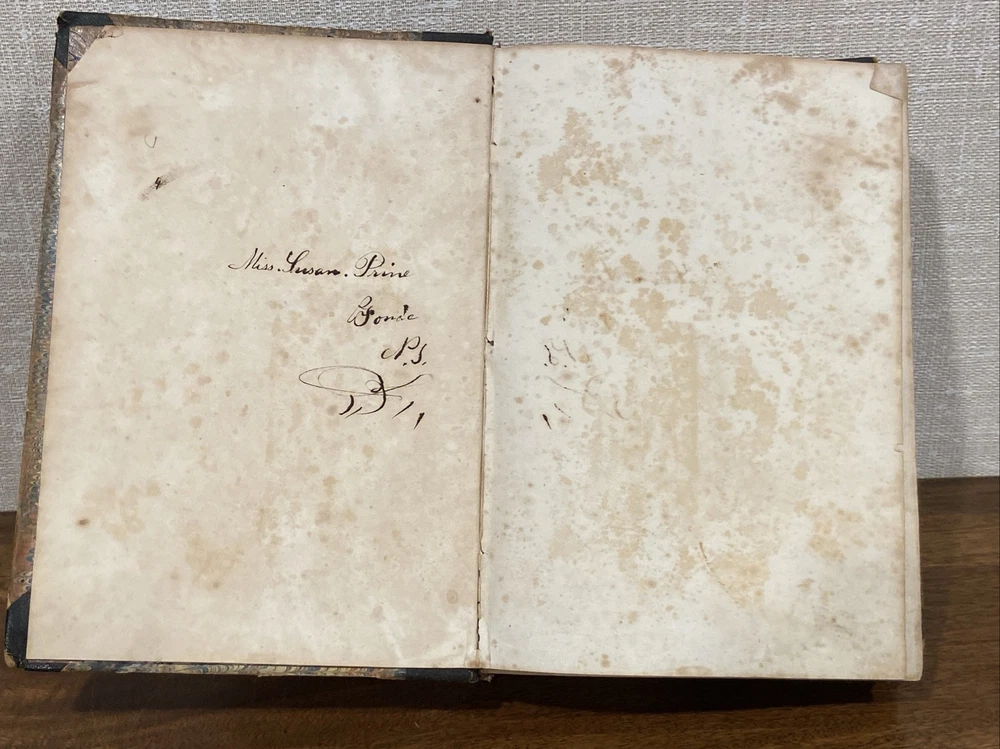 Miss. Susan. Prine
Fonda
N.Y.